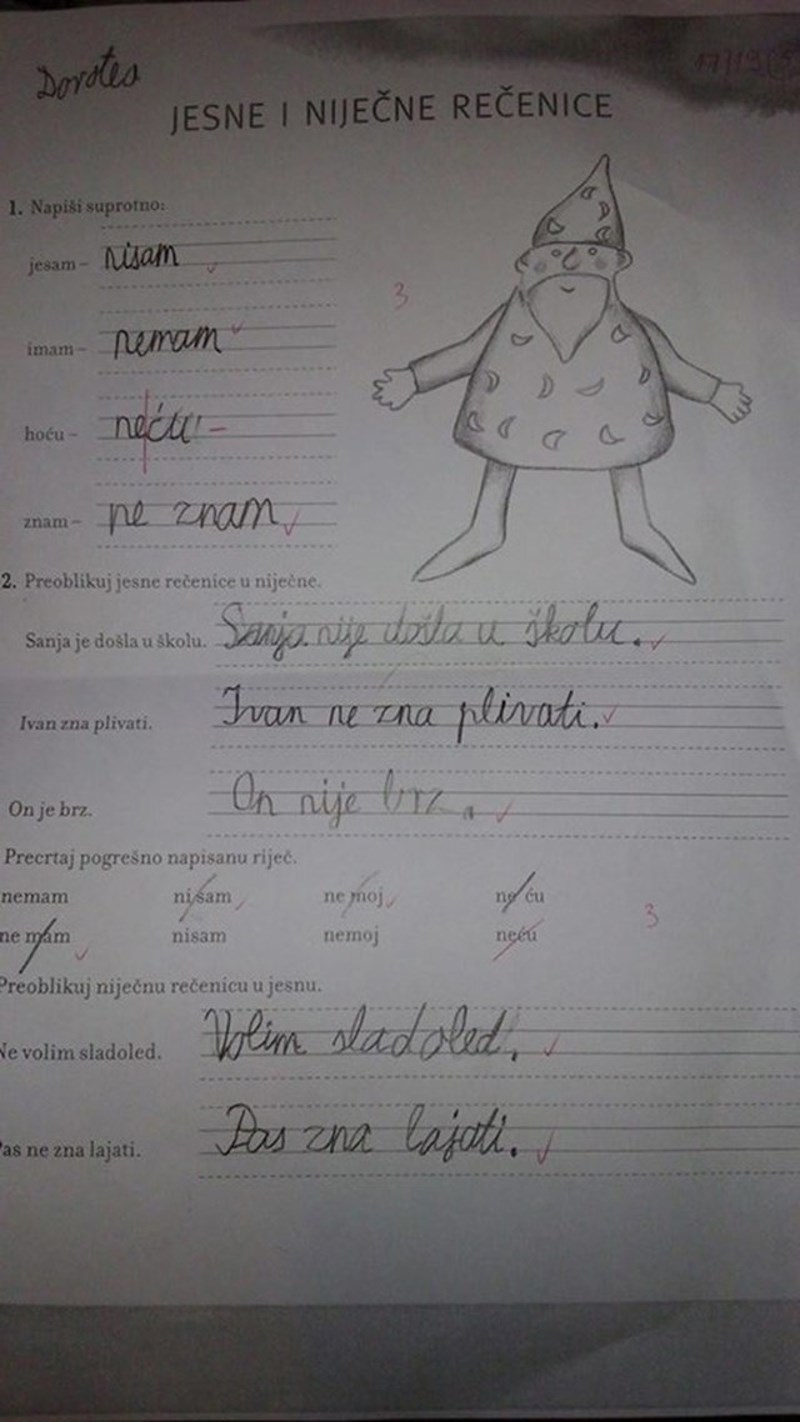 Dorotea
JESNE I NIJEČNE REČENICE
1. Napiši suprotno:
jesam – nisam
3
imam – nemam
hoću – neću –
znam – ne znam
2. Preoblikuj jesne rečenice u niječne.
Sanja je došla u školu. Sanja nije došla u školu.
Ivan zna plivati. Ivan ne zna plivati.
On je brz. On nije brz.
Precrtaj pogrešno napisanu riječ.
nemam nisam ne moj ne ću
3
ne mam nisam nemoj neću
Preoblikuj niječnu rečenicu u jesnu.
Ne volim sladoled. Volim sladoled.
as ne zna lajati. Pas zna lajati.